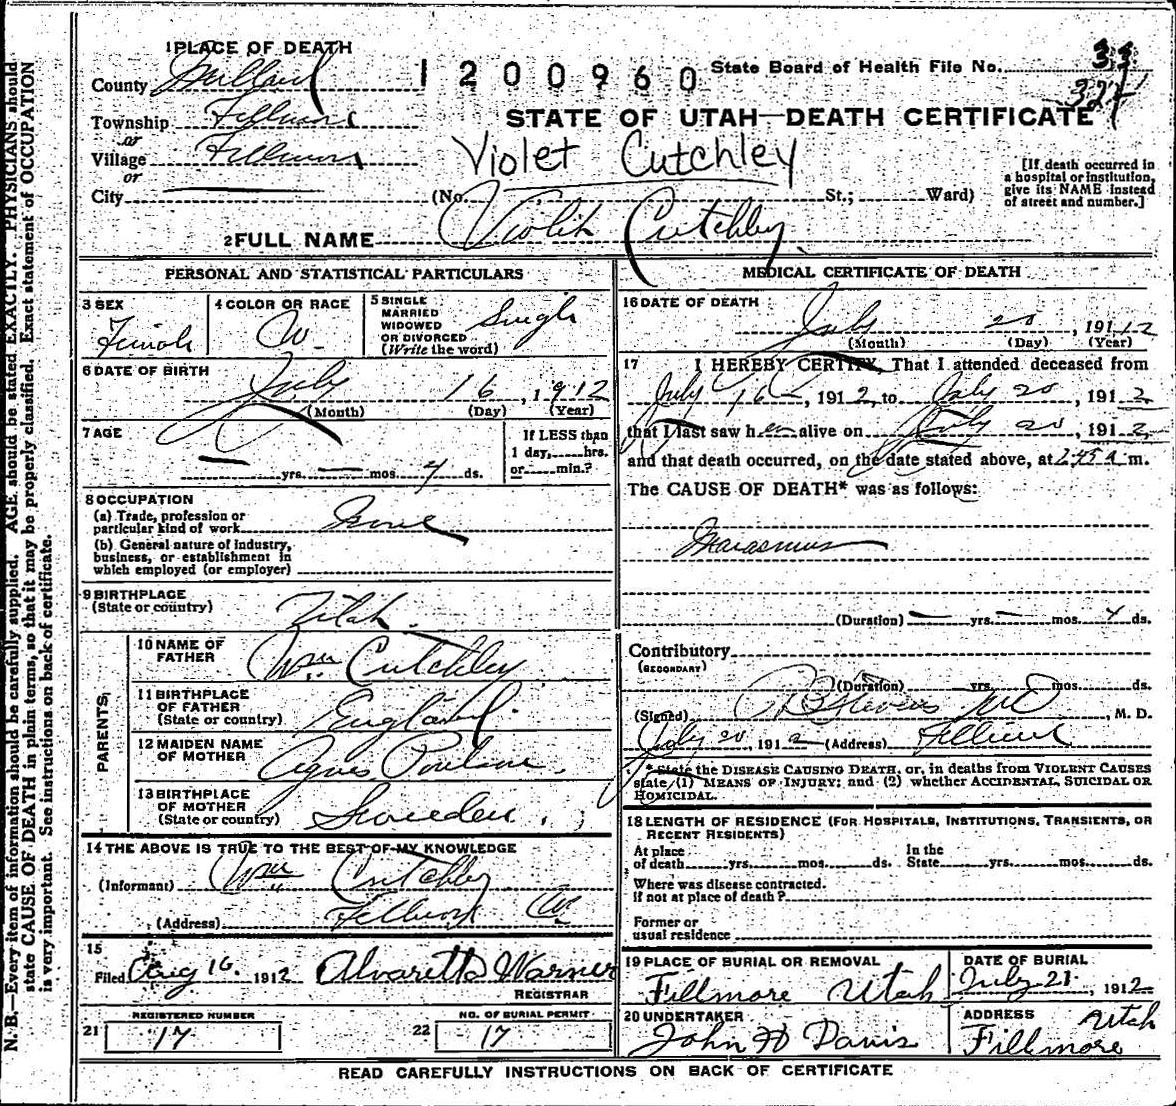 1 PLACE OF DEATH
County Millard
Township Fillmore
or
Village Fillmore
or
City
1200960
State Board of Health File No. 33
327
STATE OF UTAH—DEATH CERTIFICATE
Violet Cutchley
(No. St.; Ward)
[If death occurred in
a hospital or institution,
give its NAME instead
of street and number.]
2 FULL NAME Violet Cutchley
PERSONAL AND STATISTICAL PARTICULARS
3 SEX Female
4 COLOR OR RACE W.
5 SINGLE
MARRIED
WIDOWED
OR DIVORCED
(Write the word) Single
6 DATE OF BIRTH
July 16, 1912
(Month) (Day) (Year)
7 AGE
yrs. mos. 4 ds.
If LESS than
1 day, hrs.
or min.?
8 OCCUPATION
(a) Trade, profession or
particular kind of work None
(b) General nature of industry,
business, or establishment in
which employed (or employer)
9 BIRTHPLACE
(State or country) Utah.
PARENTS
10 NAME OF
FATHER Wm Cutchley
11 BIRTHPLACE
OF FATHER
(State or country) England.
12 MAIDEN NAME
OF MOTHER Agnes
13 BIRTHPLACE
OF MOTHER
(State or country) Sweden.
14 THE ABOVE IS TRUE TO THE BEST OF MY KNOWLEDGE
(Informant) Wm Cutchley
(Address) Fillmore
15
Filed Aug 16. 1912 Alvaretta Warner
REGISTRAR
21 REGISTERED NUMBER
17
22 NO. OF BURIAL PERMIT
17
MEDICAL CERTIFICATE OF DEATH
16 DATE OF DEATH
July 20, 1912
(Month) (Day) (Year)
17 I HEREBY CERTIFY, That I attended deceased from
July 16, 1912, to July 20, 1912
that I last saw her alive on July 20, 1912,
and that death occurred, on the date stated above, at 2.45 a m.
The CAUSE OF DEATH* was as follows:
Marasmus
(Duration) yrs. mos. 4 ds.
Contributory
(SECONDARY)
(Duration) yrs. mos. ds.
(Signed) Stevens MD, M. D.
July 20, 1912 (Address) Fillmore
* State the DISEASE CAUSING DEATH, or, in deaths from VIOLENT CAUSES
state (1) MEANS OF INJURY; and (2) whether ACCIDENTAL, SUICIDAL OR
HOMICIDAL.
18 LENGTH OF RESIDENCE (FOR HOSPITALS, INSTITUTIONS, TRANSIENTS, OR
RECENT RESIDENTS)
At place
of death yrs. mos. ds.
In the
State yrs. mos. ds.
Where was disease contracted.
if not at place of death?
Former or
usual residence
19 PLACE OF BURIAL OR REMOVAL
Fillmore Utah
DATE OF BURIAL
July 21, 1912
20 UNDERTAKER
John H Davis
ADDRESS Utah
Fillmore
READ CAREFULLY INSTRUCTIONS ON BACK OF CERTIFICATE
N. B.—Every item of information should be carefully supplied. AGE should be stated EXACTLY. PHYSICIANS should
state CAUSE OF DEATH in plain terms, so that it may be properly classified. Exact statement of OCCUPATION
is very important. See instructions on back of certificate.